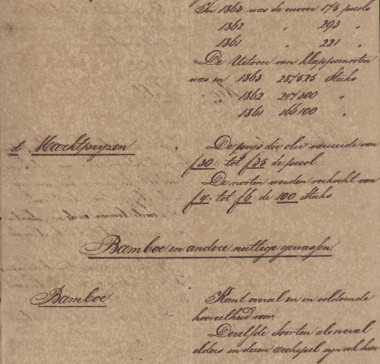 In 1863 was de invoer 175 picols
1862 " 293 "
1861 " 221 "
De Uitvoer van klappernooten
was in 1863 257575 Stuks
1862 297300 "
1861 166100 "
d Marktpryzen De prijs der olie varieerde van
f30: tot f35 de picol
De nooten werden verkocht van
f4: tot f6 de 100 Stuks
Bamboe en andere nuttige gewassen.
Bamboe Komt overal en in voldoende
hoeveelheid voor.
Dezelfde soorten als overal
elders in dezen archipel op